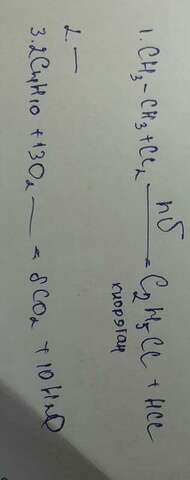 1. CH3 - CH3 + Cl2 hδ → C2H5Cl + HCl
хлорэтан
2. —
3. 2C4H10 + 13O2 → 8CO2 + 10H2O